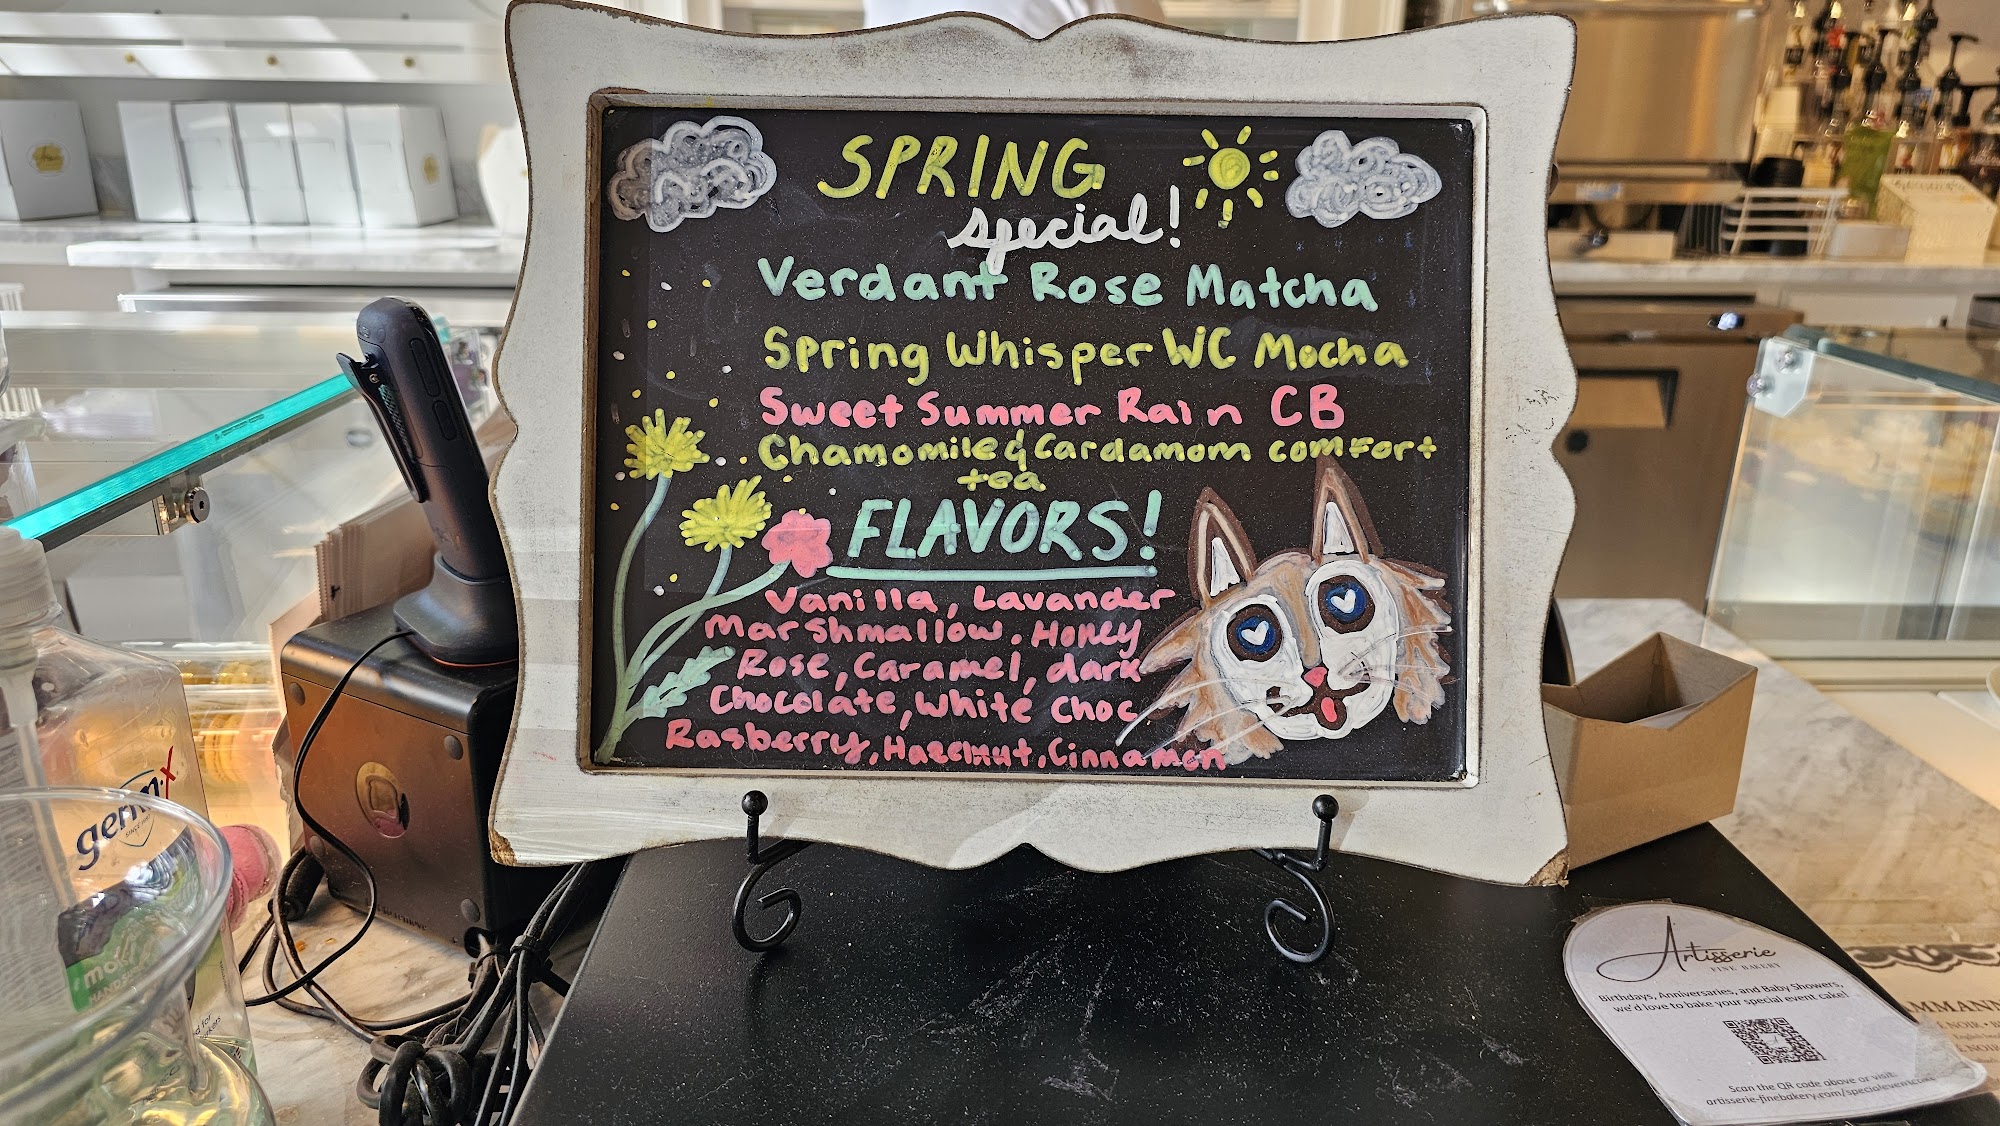 SPRING
special!
Verdant Rose Matcha
Spring Whisper WC Mocha
Sweet Summer Rain CB
Chamomile & Cardamom comfort
tea
FLAVORS!
Vanilla, Lavander
Marshmallow. Honey
Rose, Caramel, dark
Chocolate, White Choc
Rasberry, Hazelnut, Cinnamon
germ-x
SINCE 1997
Artisserie
FINE BAKERY
Birthdays, Anniversaries, and Baby Showers,
we'd love to bake your special event cake!
Scan the QR code above or visit:
artisserie-finebakery.com/specialevent
AMMANN
NOIR